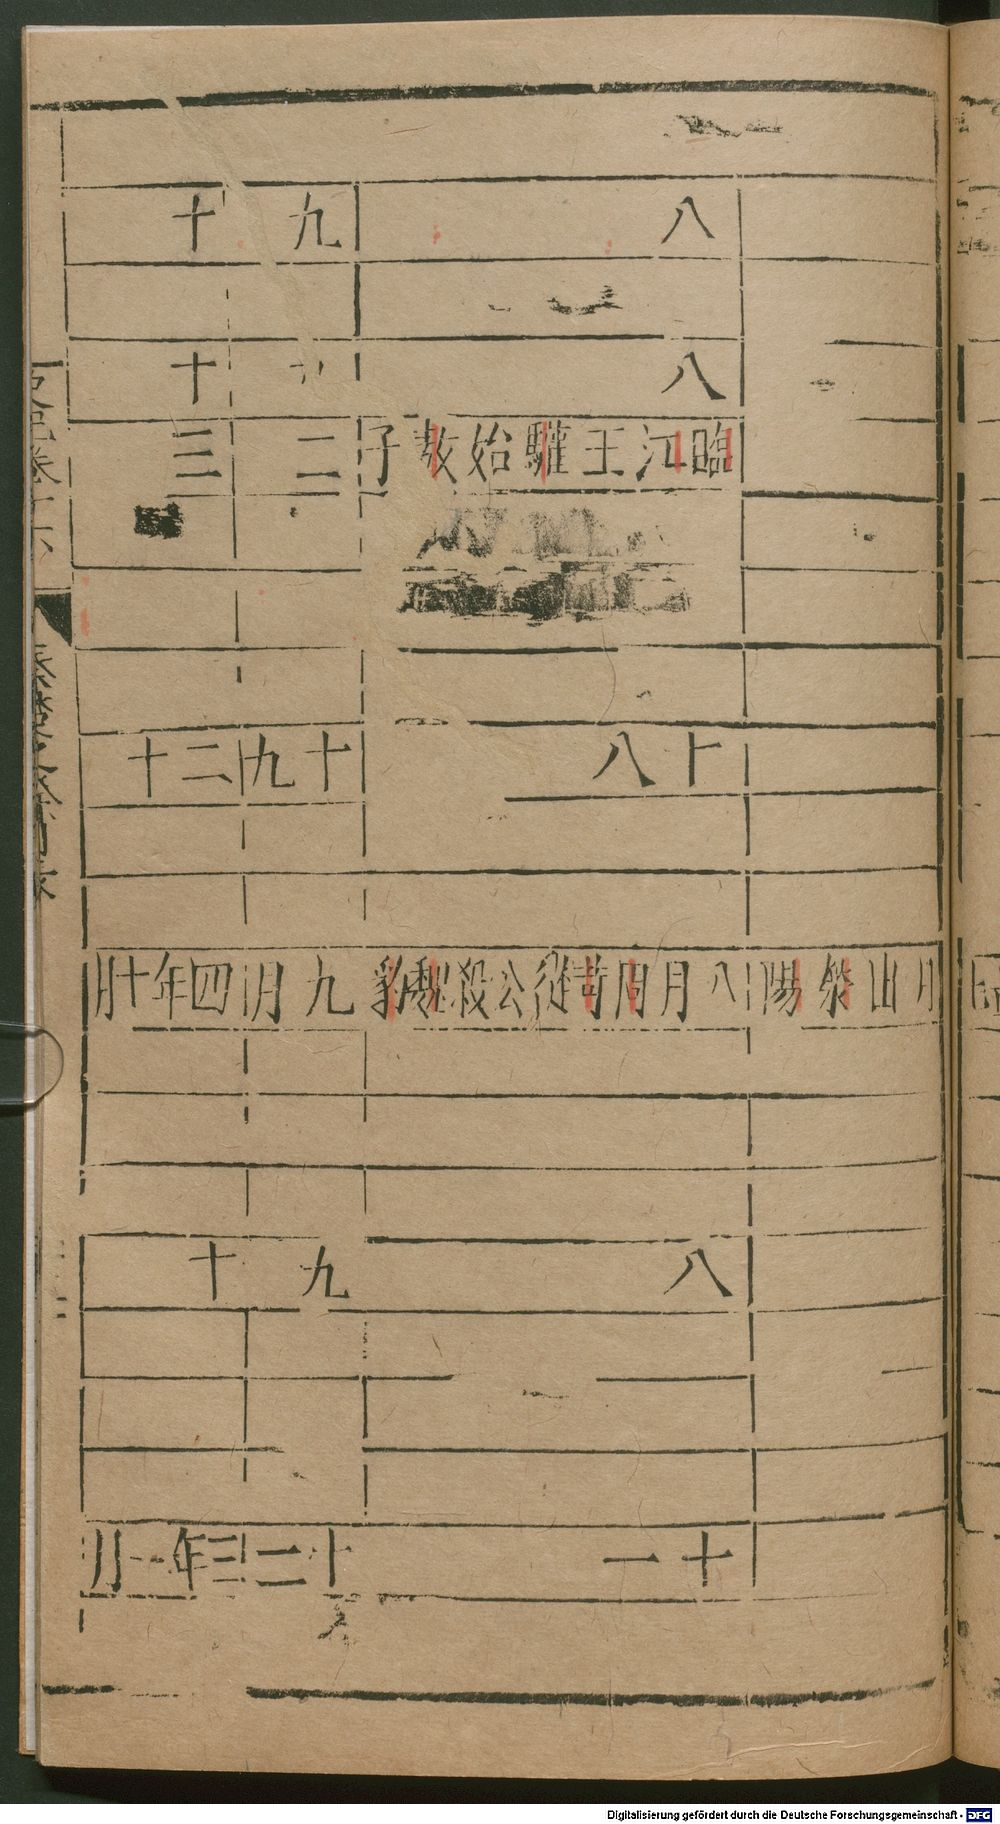 八 九 十
八 十
臨江王驩始敖子 二 三
十八 十九 二十
月出滎陽 八月周苛從公殺魏豹 九月 四年十月
八 九 十
十一 十二 三年一月
Digitalisierung gefördert durch die Deutsche Forschungsgemeinschaft - DFG